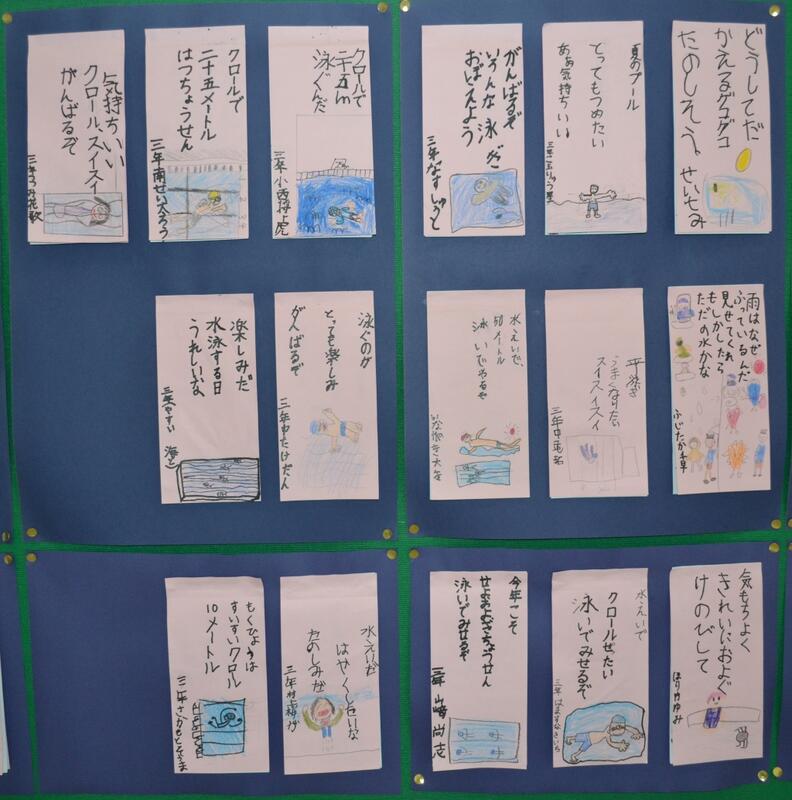 どうしてだ
かえるゲコゲコ
たのしそう。
夏のプール
とってもつめたい
ああ気持ちいい
がんばるぞ
いろんな泳ぎ
おぼえよう
三年
クロールで
二十五m
泳ぐんだ
三年
クロールで
二十五メートル
はつちょうせん
三年
気持ちいい
クロール、スイスイ
がんばるぞ
三年
雨はなぜ
ふっているんだ
見せてくれ
もしかしたら
ただの水かな
ふじたか千早
平泳ぎ
うまくなりたい
スイスイスイ
三年
水えいで、
50メートル
泳いでやるぞ
泳ぐのが
とっても楽しみ
がんばるぞ
三年中たけだん
楽しみだ
水泳する日
うれしいな
三年やすい 海
気もちよく
きれいにおよぐ
けのびして
ほりかゆみ
水えいで
クロールぜったい
泳いでみせるぞ
三年
今年こそ
せよおよぎちょうせん
泳いでみせるぞ
三年 山崎尚志
水えいだ
はやくしたいな
たのしみだ
三年
もくひょうは
すいすいクロール
10メートル
三年さかもと